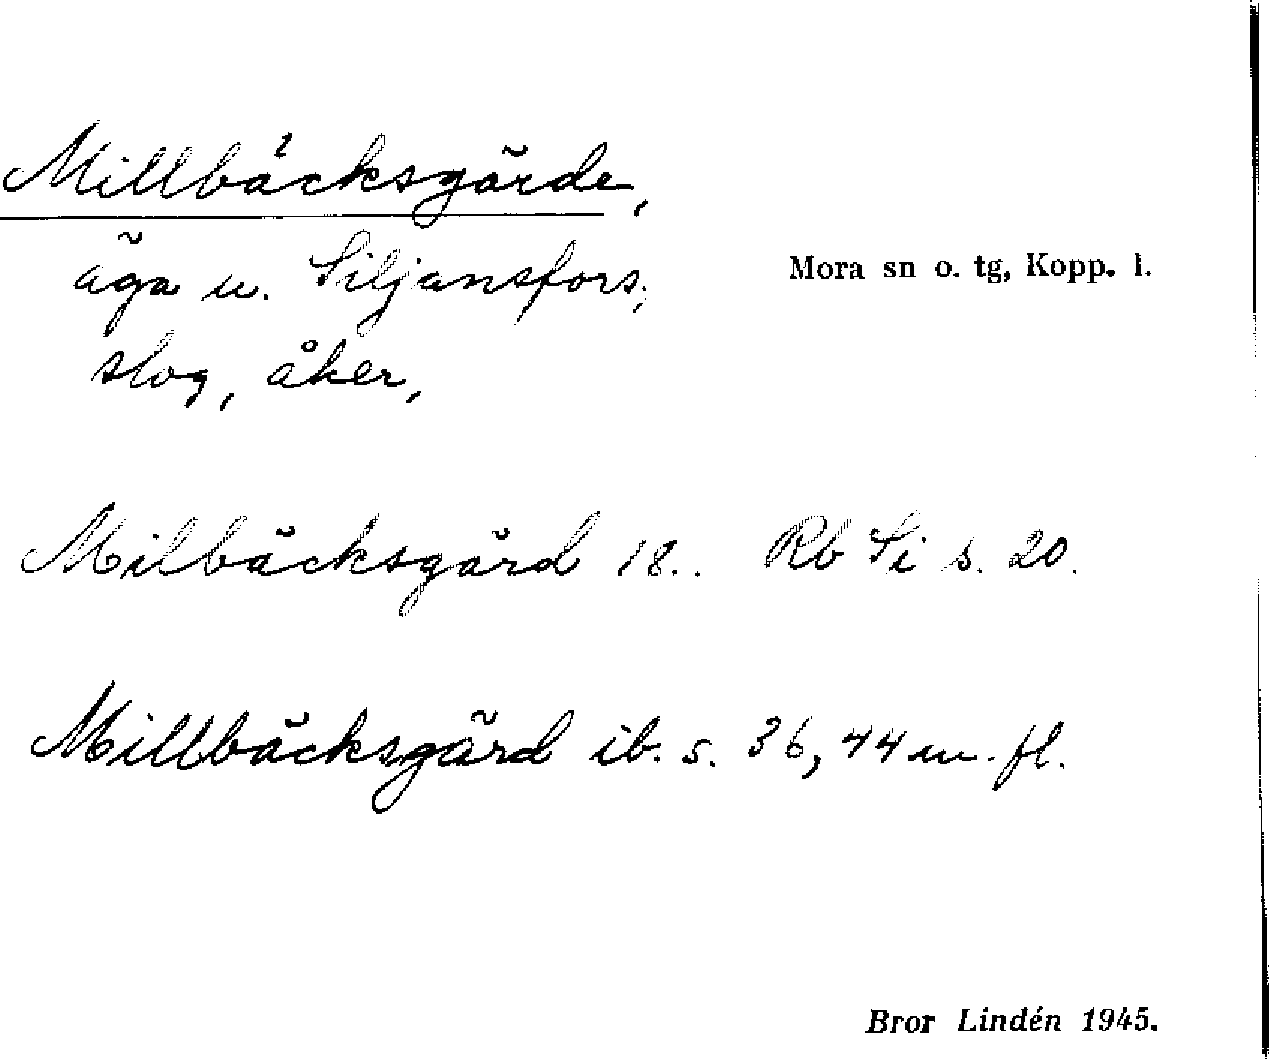 Millbäcksgärde,
äga u. Siljansfors;
Mora sn o. tg, Kopp. l.
slog, åker,
Milbäcksgärd 18.. Rb Si s. 20.
Millbäcksgärd ib. s. 36, 44 m. fl.
Bror Lindén 1945.